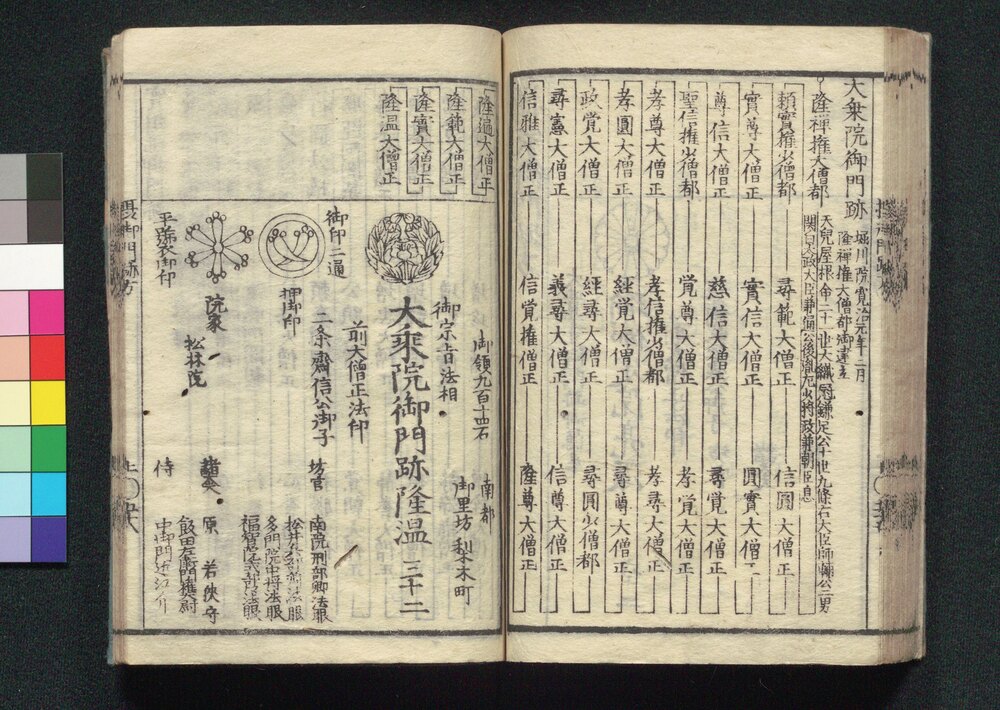 大乗院御門跡
堀川院寛治元年二月
隆禅権大僧都御建立
隆禅権大僧都
天児屋根命二十一世大織冠鎌足公十世九條右大臣師輔公三男
関白太政大臣兼通公後胤左少将政兼朝臣息
頼實権少僧都 尋範大僧正 信圓大僧正
實尊大僧正 實信大僧正 圓實大僧正
尊信大僧正 慈信大僧正 尋覚大僧正
聖信権少僧都 覚尊大僧正 孝覚大僧正
孝尊大僧正 孝信権少僧都 孝尋大僧正
孝圓大僧正 經覚大僧正 尋尊大僧正
政覚大僧正 經尋大僧正 尋圓少僧都
尋憲大僧正 義尋大僧正 信尊大僧正
信雅大僧正 信覚権僧正 隆尊大僧正
隆遍大僧正
隆範大僧正
隆實大僧正
隆温大僧正
御領九百十四石
南都
御里坊 梨木町
御宗旨法相
大乗院御門跡隆温 三十二
前大僧正法印
二条齋信公御子
御印二通
押御印
平瑞衣御印
坊官
南院刑部卿法眼
多門院中将法眼
福智院式部法眼
院家
松林院
諸大夫
原 若狭守
侍
飯田左衛門大尉
中御門近江介
摂御門跡方